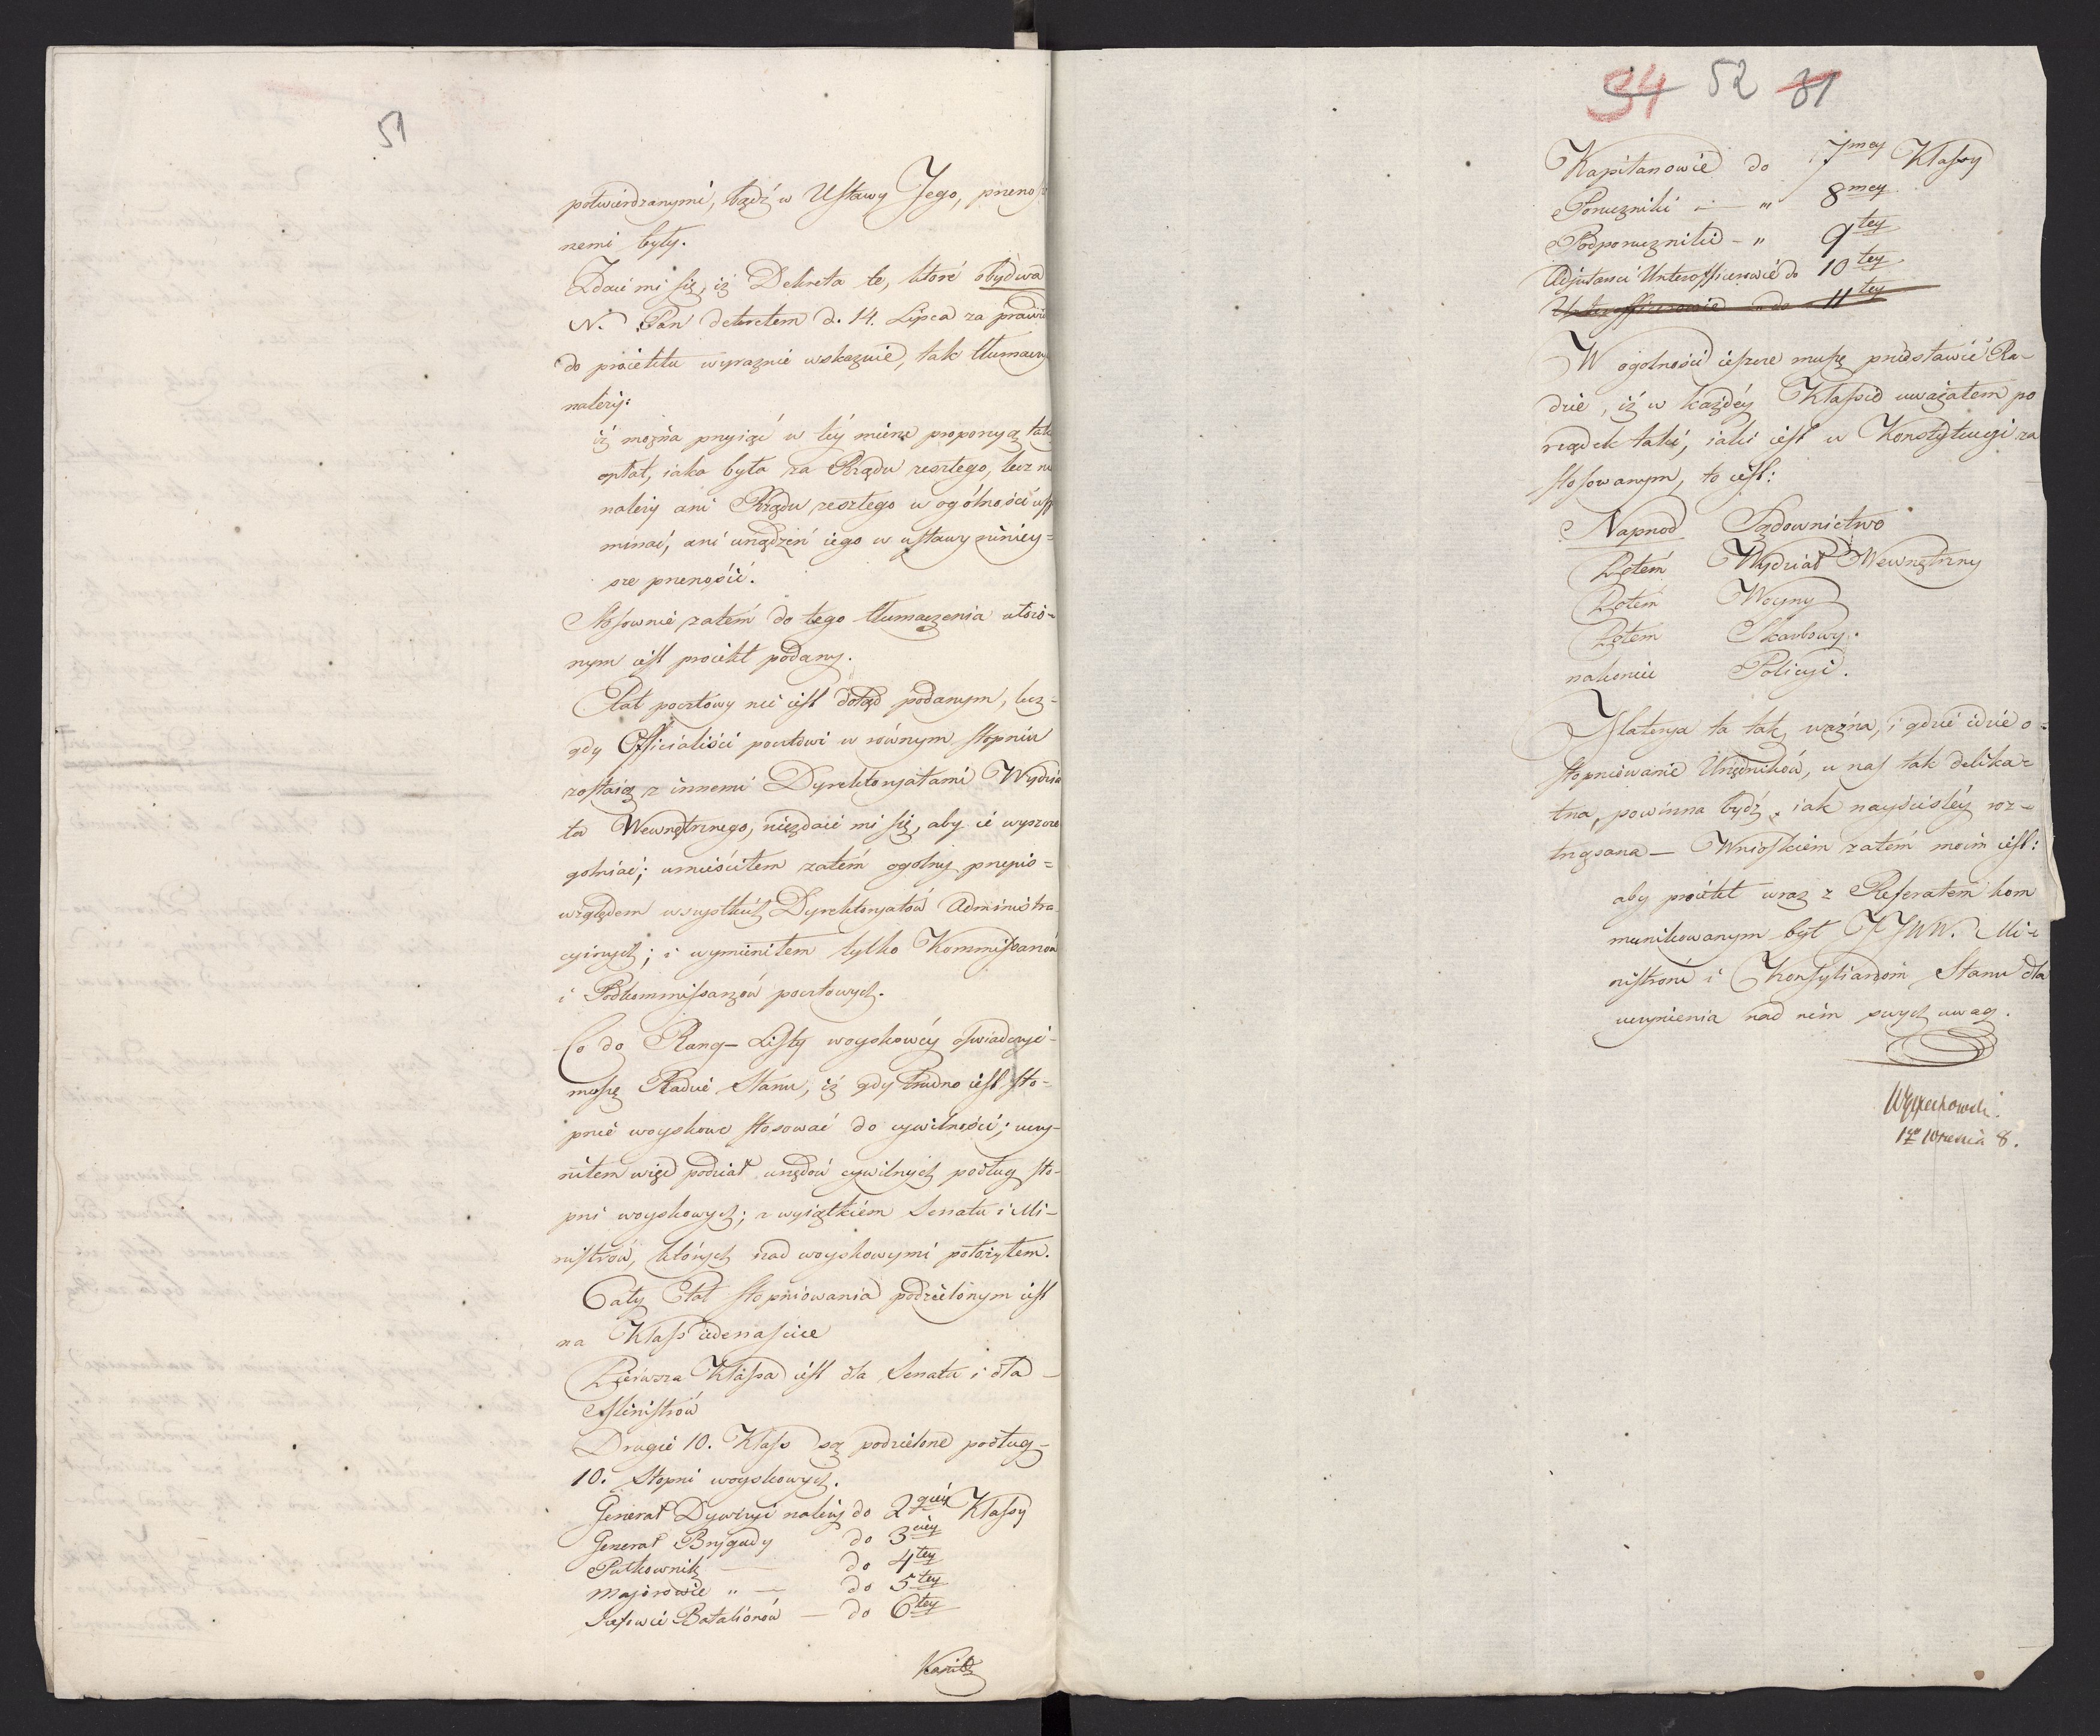 51
potwierdzanymi, bądź w Ustawy Jego, przeno
nemi były.
Zdaie mi się, iż Dekreta te, które obydwa
N. Pan dekretem d. 14. Lipca za prawi
do proiektu wyraznie wskazuie, tak tłumaczy
należy:
iż można przyiąć w tey mierze propozycyą tak
opłat, iaka była za Rządu zeszłego, lecz nie
należy ani Rządu zeszłego w ogólności wsp
minać, ani urządzeń iego w ustawy niniey-
sze przenosić.
Stosownie zatem do tego tłumaczenia ułożo-
nym iest proiekt podany.
Etat pocztowy nie iest dotąd podanym, lecz
gdy Officialiści pocztowi w równym stopniu
zostaią z innemi Dyrektoryatami Wydzia
łu Wewnętrznego, niezdaie mi się, aby ie wyszcze
golniać; umieściłem zatem ogolny przepis
względem wszystkich Dyrektoryatów Administra-
cyinych; i wymieniłem tylko Kommissarzów
i Podkommissarzów pocztowych.
Co do Rang-Listy woyskowéy oświadczyć
muszę Radzie Stanu, iż gdy trudno iest sto-
pnie woyskowe stosować do cywilności; uczy-
niłem więc podział urzędów cywilnych podług sto-
pni woyskowych; z wyiątkiem Senatu i Mi-
nistrów, których nad woyskowymi położyłem.
Cały Etat stopniowania podzielonym iest
na Klass iedenaście
Pierwsza Klassa iest dla Senatu i dla
Ministrów
Drugie 10. Klass są podzielone podług
10. Stopni woyskowych.
Generał Dywizyi należy do 2giéy Klassy
Generał Brygady do 3ciéy
Pułkownik — do 4tey
Majorowie „ — do 5tey
Szefowie Batalionów — do 6tey
Kapit
34 52 31
Kapitanowie do 7mey Klassy
Porucznik — „ 8mey
Podporucznik — „ 9tey
Adjutanci Unterofficerowie do 10tey
Unterofficerowie „ do 11tey
W ogolności ieszcze muszę przedstawić Ra-
dzie, iż w każdéy Klassie uważałem po
rządek taki, iaki iest w Konstytucyi za
stosowanym, to iest:
Naprzod Sądownictwo
Potem Wydział Wewnętrzny
Potem Woyny
Potem Skarbowy.
nakoniec Policyi.
Materya ta tak ważna, i gdzie idzie o
stopniowanie Urzędników, u nas tak delika-
tna, powinna bydź iak nayściśléy roz-
trząsana — Wnioskiem zatém moim iest:
aby proiekt wraz z Referatem kom
munikowanym był JJWW. Mi-
nistrom i Konsyliarzom Stanu dla
uczynienia nad nim swych uwag.
Wyczechowski.
1go Września 8.